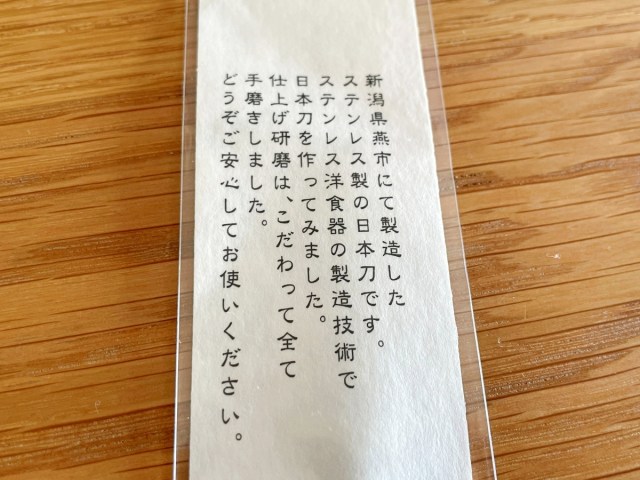 新潟県燕市にて製造した
ステンレス製の日本刀です。
ステンレス洋食器の製造技術で
日本刀を作ってみました。
仕上げ研磨は、こだわって全て
手磨きしました。
どうぞご安心してお使いください。